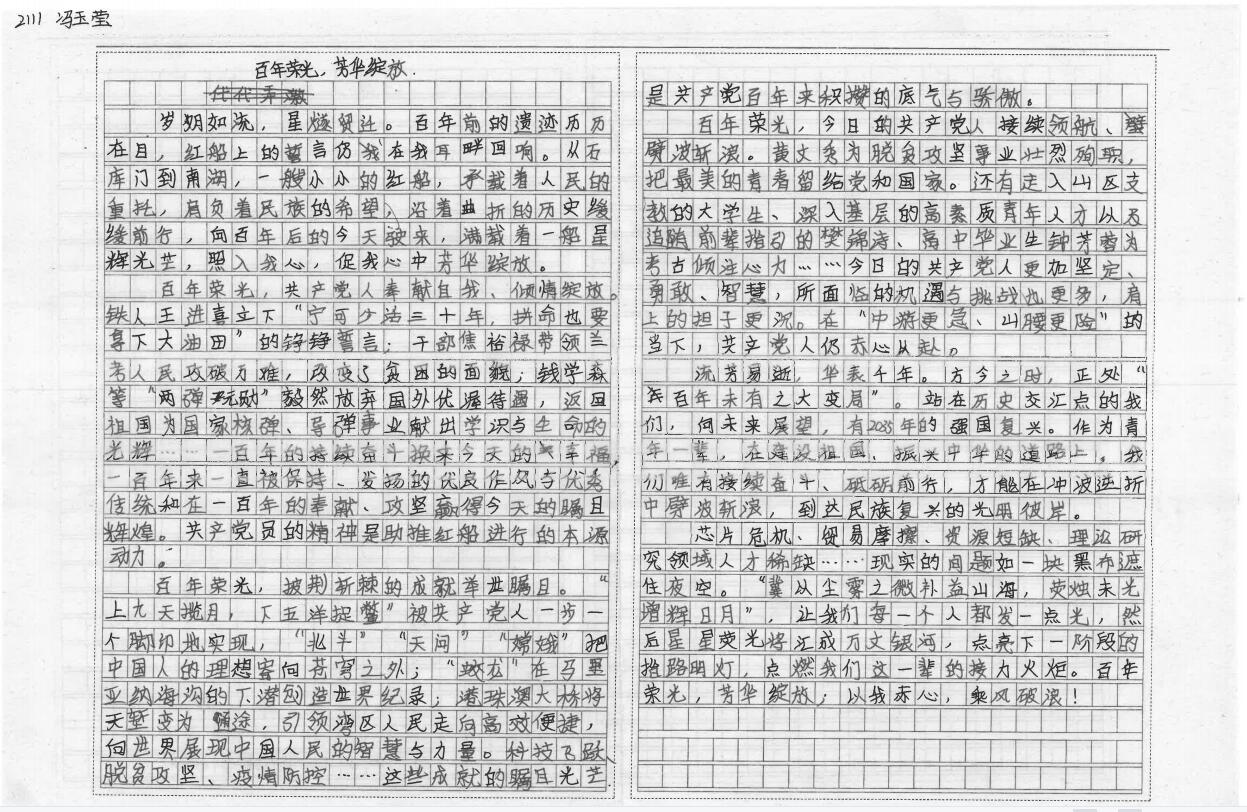 2111 冯玉莹
百年荣光，芳华绽放.
岁朔如流，星燧贸迁。百年前的遗迹历历
在目，红船上的誓言仍我在我耳畔回响。从石
库门到南湖，一艘小小的红船，承载着人民的
重托，肩负着民族的希望，沿着曲折的历史缓
缓前行，向百年后的今天驶来，满载着一船星
辉光芒，照入我心，促我心中芳华绽放。
百年荣光，共产党人奉献自我、倾情绽放。
铁人王进喜立下“宁可少活二十年，拼命也要
拿下大油田”的铮铮誓言；干部焦裕禄带领兰
考人民攻破万难，改变了贫困的面貌；钱学森
等“两弹元勋”毅然放弃国外优渥待遇，返回
祖国为国家核弹、导弹事业献出学识与生命的
光辉……一百年的持续奋斗换来今天的幸福，
一百年来一直被保持、发扬的优良作风与优秀
传统和在一百年的奉献、攻坚赢得今天的瞩目
辉煌。共产党员的精神是助推红船进行的本源
动力。
百年荣光，披荆斩棘的成就举世瞩目。“
上九天揽月，下五洋捉鳖”被共产党人一步一
个脚印地实现，“北斗”“天问”“嫦娥”把
中国人的理想寄向苍穹之外；“蛟龙”在马里
亚纳海沟的下潜创造世界纪录；港珠澳大桥将
天堑变为通途，引领湾区人民走向高效便捷，
向世界展现中国人民的智慧与力量。科技飞跃、
脱贫攻坚、疫情防控……这些成就的瞩目光芒
是共产党百年来积攒的底气与骄傲。
百年荣光，今日的共产党人接续领航、
劈波斩浪。黄文秀为脱贫攻坚事业壮烈殉职，
把最美的青春留给党和国家。还有走入山区支
教的大学生、深入基层的高素质青年人才以及
追随前辈指引的樊锦诗、高中毕业生钟芳蓉为
考古倾注心力……今日的共产党人更加坚定、
勇敢、智慧，所面临的机遇与挑战也更多，肩
上的担子更沉。在“中游更急、山腰更险”的
当下，共产党人仍赤心从赴。
流芳易逝，华表千年。方今之时，正处“
百年未有之大变局”。站在历史交汇点的我
们，向未来展望，有2035年的强国复兴。作为青
年一辈，在建设祖国、振兴中华的道路上，我
们唯有接续奋斗、砥砺前行，才能在冲波逆折
中劈波斩浪，到达民族复兴的光明彼岸。
芯片危机、贸易摩擦、资源短缺、理论研
究领域人才稀缺……现实的问题如一块黑布遮
住夜空。“冀以尘雾之微补益山海，荧烛末光
增辉日月”，让我们每一个人都发一点光，然
后星星荧光将汇成万丈银河，点亮下一阶段的
指路明灯，点燃我们这一辈的接力火炬。百年
荣光，芳华绽放；以我赤心，乘风破浪！